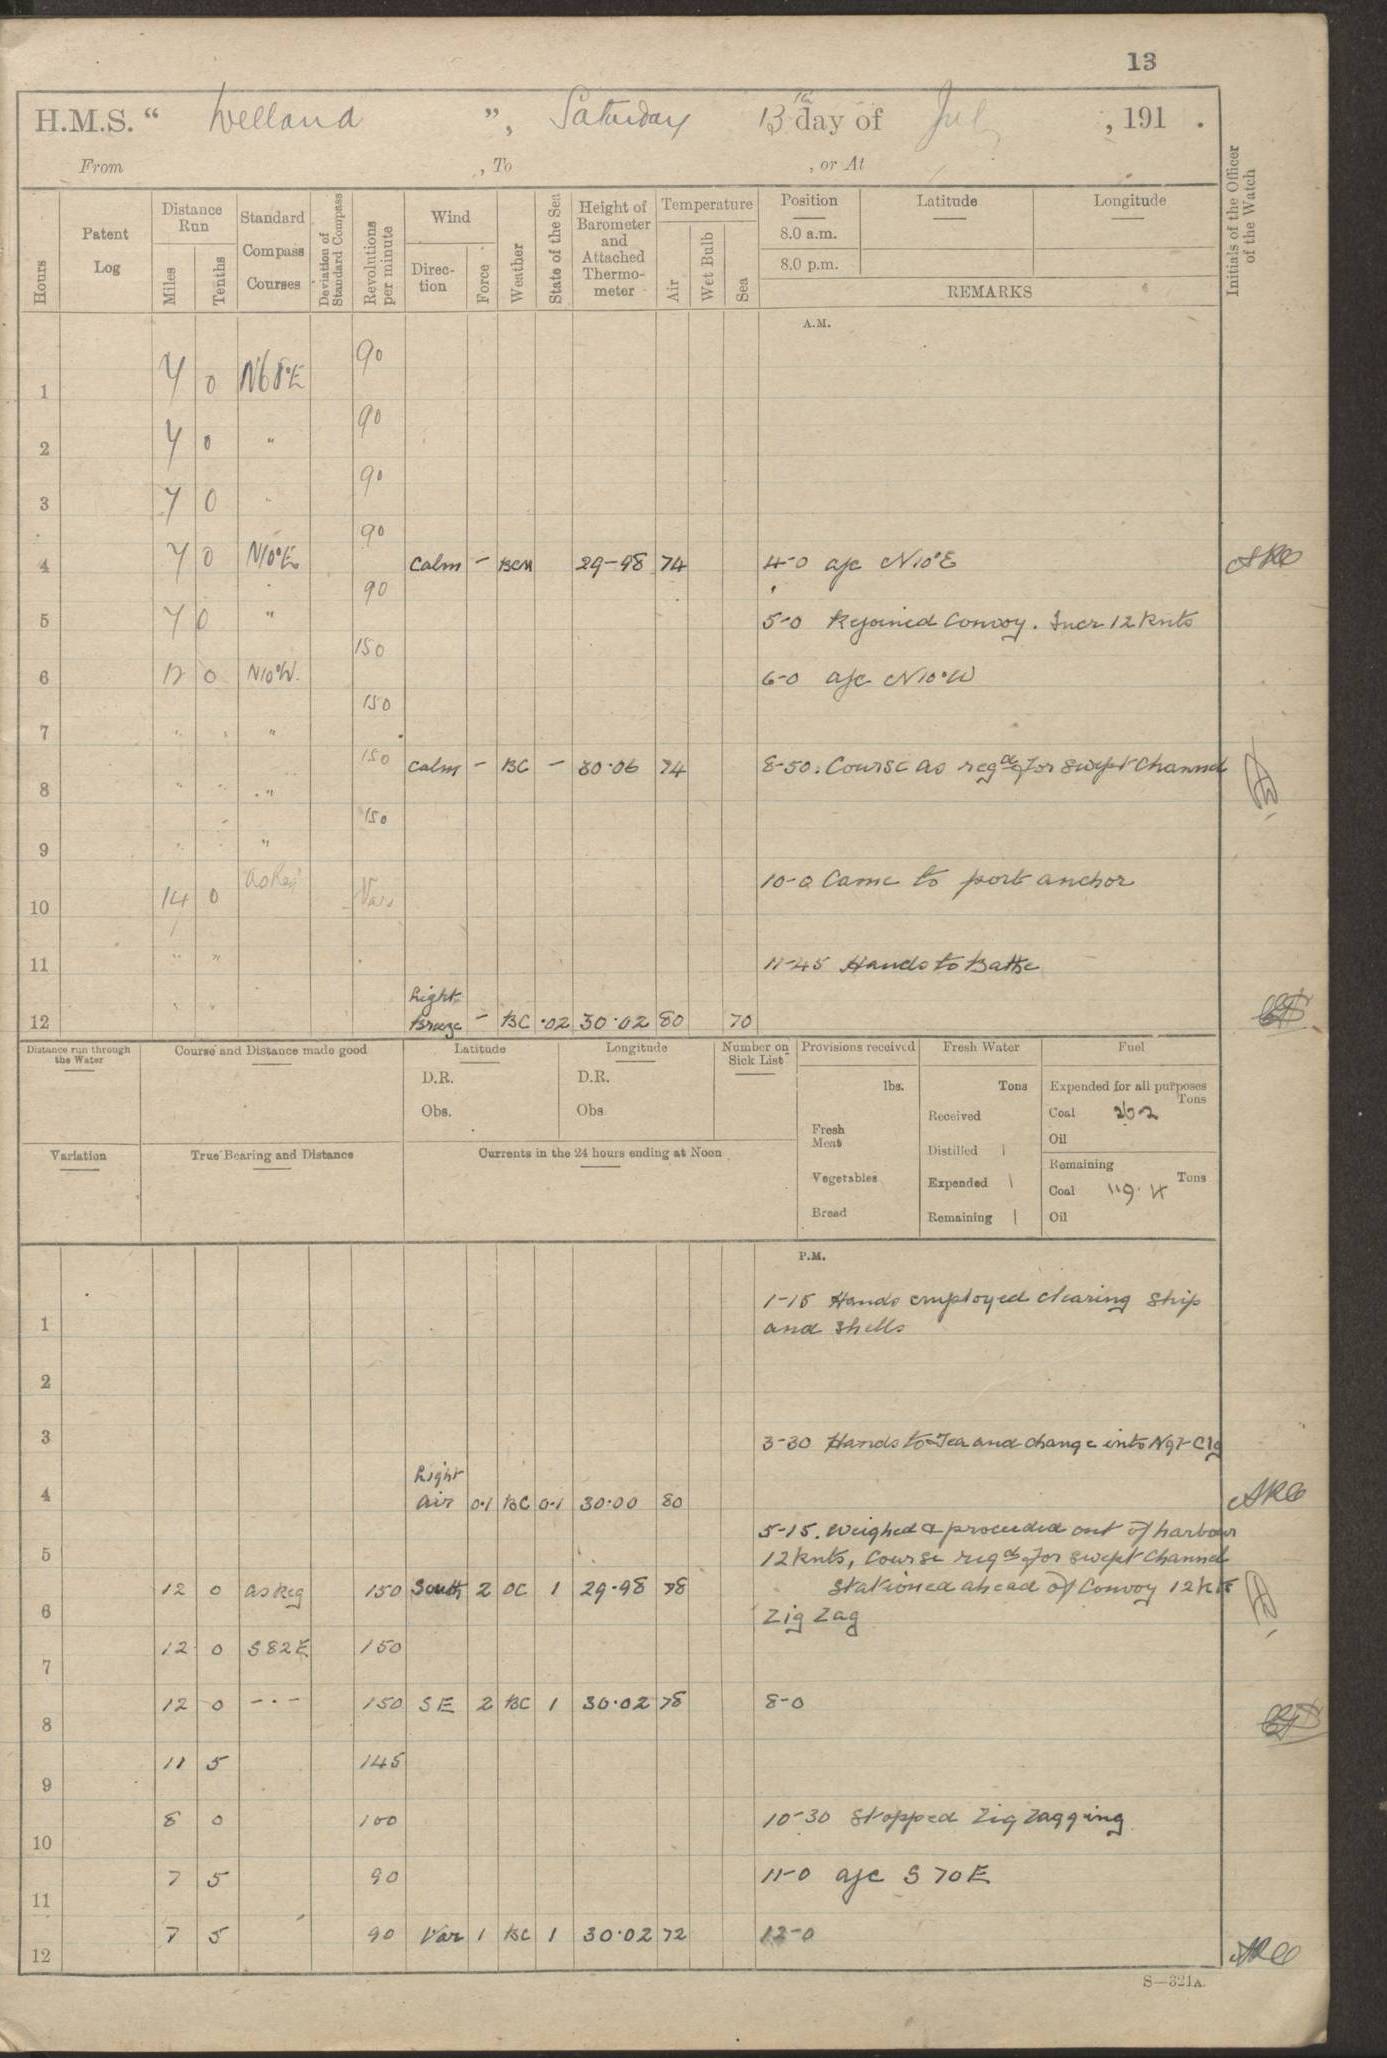 13
H.M.S. " Welland ", Saturday 13th day of July, 191 .
From , To , or At
Hours
Patent Log
Distance Run
Miles
Tenths
Standard Compass Courses
Deviation of Standard Compass
Revolutions per minute
Wind
Direction
Force
Weather
State of the Sea
Height of Barometer and Attached Thermometer
Temperature
Air
Wet Bulb
Sea
Position
8.0 a.m.
8.0 p.m.
Latitude
Longitude
REMARKS
Initials of the Officer of the Watch
A.M.
1 7 0 N68°E 90
2 7 0 " 90
3 7 0 " 90
4 7 0 N10°E 90 Calm - BCM 29-98 74 4-0 a/c N10°E
5 7 0 " 90 5-0 Rejoined Convoy. Incr 12 knts
6 12 0 N10°W. 150 6-0 a/c N10°W
7 " " " 150
8 " " " 150 Calm - BC - 30.06 74 8-50. Course as reqd for swept Channel
9 " " " 150
10 14 0 as Req Var 10-0 Came to port anchor
11 " " 11-45 Hands to Bathe
12 " " Light Breeze - BC .02 30.02 80 70
Distance run through the Water
Course and Distance made good
Latitude
D.R.
Obs.
Longitude
D.R.
Obs
Number on Sick List
Provisions received
lbs.
Fresh Meat
Vegetables
Bread
Fresh Water
Tons
Received
Distilled
Expended
Remaining
Fuel
Expended for all purposes
Tons
Coal
Oil
Remaining
Tons
Coal 119.4
Oil
Variation
True Bearing and Distance
Currents in the 24 hours ending at Noon
P.M.
1 1-15 Hands employed clearing Ship
and shells
2
3 3-30 Hands to Tea and change into Ngt Clg
4 Light air 0.1 BC 0.1 30.00 80
5-15. Weighed & proceeded out of harbour
5 12 knts, Course reqd for swept Channel
12 0 as Req 150 South 2 OC 1 29.98 78 Stationed ahead of Convoy 12 kts
6 Zig Zag
7 12 0 S82E 150
8 12 0 -.- 150 SE 2 BC 1 30.02 78 8-0
9 11 5 145
10 8 0 100 10-30 Stopped Zig Zagging
11 7 5 90 11-0 a/c S70E
12 7 5 90 Var 1 BC 1 30.02 72 12-0
S-321A.